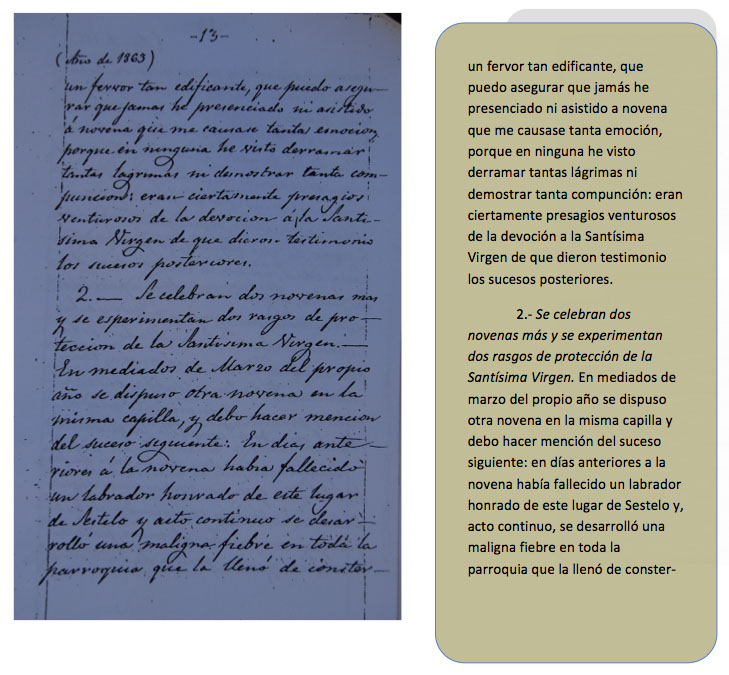 -13-
(Año de 1863)
un fervor tan edificante, que puedo asegu-
rar que jamas he presenciado ni asistido
á novena que me causase tantas emocion,
porque en ninguna he visto derramar
tantas lagrimas ni demostrar tanta com-
puncion: eran ciertamente presagios
venturosos de la devocion á la Santi-
sima Virgen de que dieron testimonio
los sucesos posteriores.
2.— Se celebran dos novenas mas
y se esperimentan dos rasgos de pro-
teccion de la Santisima Virgen.—
En mediados de Marzo del propio
año se dispuso otra novena en la
misma capilla, y debo hacer mencion
del suceso seguiente: En dias ante-
riores á la novena habia fallecido
un labrador honrado de este lugar
de Sestelo y acto continuo se desar-
rolló una maligna fiebre en toda la
parroquia que la llenó de conster-
un fervor tan edificante, que
puedo asegurar que jamás he
presenciado ni asistido a novena
que me causase tanta emoción,
porque en ninguna he visto
derramar tantas lágrimas ni
demostrar tanta compunción: eran
ciertamente presagios venturosos
de la devoción a la Santísima
Virgen de que dieron testimonio
los sucesos posteriores.
2.- Se celebran dos
novenas más y se experimentan
dos rasgos de protección de la
Santísima Virgen. En mediados de
marzo del propio año se dispuso
otra novena en la misma capilla y
debo hacer mención del suceso
siguiente: en días anteriores a la
novena había fallecido un labrador
honrado de este lugar de Sestelo y,
acto continuo, se desarrolló una
maligna fiebre en toda la
parroquia que la llenó de conster-